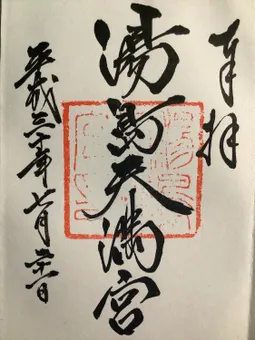 奉拝
湯島天満宮
平成三十年七月